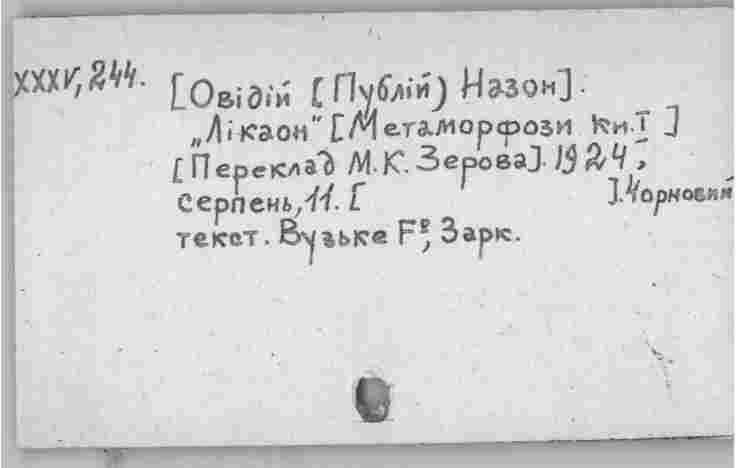 XXXV, 244. [Овідій [Публій) Назон].
„Лікаон" [Метаморфози кн. I ]
[Переклад М. К. Зерова]. 1924,
серпень, 11. [ ]. Чорновий
текст. Вузьке Fº, 3 арк.